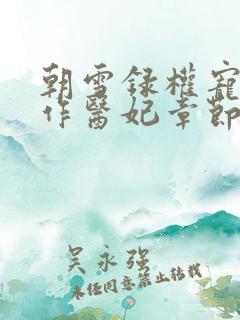 朝雪録權寵
作醫妃章節
吴永强
未经同意禁止转载